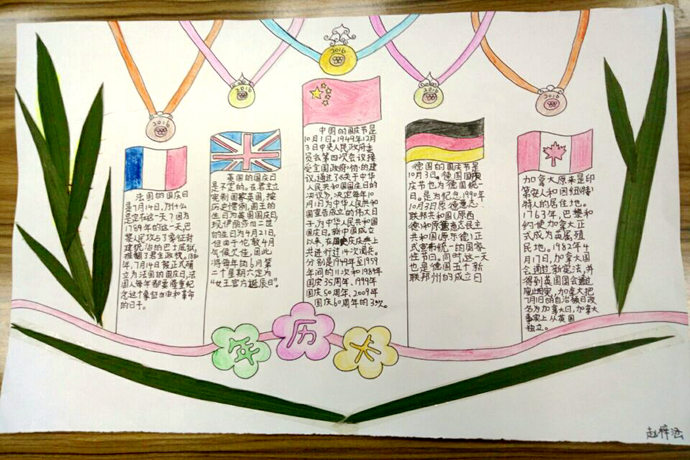 2016
2016
2016
2016
2016
法国的国庆日
是7月14日,为什么
是定在这一天?因为
1789年的这一天,巴
黎人民攻占了象征封
建统治的巴士底狱,
推翻了君主政权。1880
年,7月14日被正式确
立为法国的国庆日,法国
人每年都要隆重纪
念这个象征自由和革命
的日子。
英国的国庆日
是不定的。在君主立
宪制国家英国,按
历史惯例,国王的
生日为英国国庆日,
现伊丽莎白二世
的生日为4月21日,
但由于伦敦4月
气候欠佳,因此,
将每年的6月第
二个星期六定为
“女王官方诞辰日”。
中国的国庆节是
10月1日。1949年12月
3日中央人民政府委
员会第四次会议接
受全国政协的
建议,通过了《关于中华
人民共和国国庆日的
决议》,决定每年10
月1日为中华人民共和
国宣告成立的伟大日
子,为中华人民共和国
国庆日。新中国成立
以来,在国庆庆典上
共进行过14次阅兵。
分别是1949年至1959
年间的11次和1984年
国庆35周年、1999年
国庆50周年、2009年
国庆60周年的3次。
德国的国庆节是
10月3日。德国国
庆节也为德国统一
日。是为纪念1990年
10月3日原德意志
联邦共和国(原西
德)和原德意志民主
共和国(原东德)正
式宣布统一的国家
性节日。同时,这一天
也是德国五个新
联邦州的成立日
加拿大原来是印
第安人和因纽特
特人的居住地。
1763年,巴黎和
约使加拿大正
式成为英属殖
民地。1982年4
月17日,加拿大国
会通过新宪法,并
得到英国国会通过
加拿大把
7月1日的自治领日改
名为加拿大日,加拿大
事实上从英国
独立。
年 历 卡